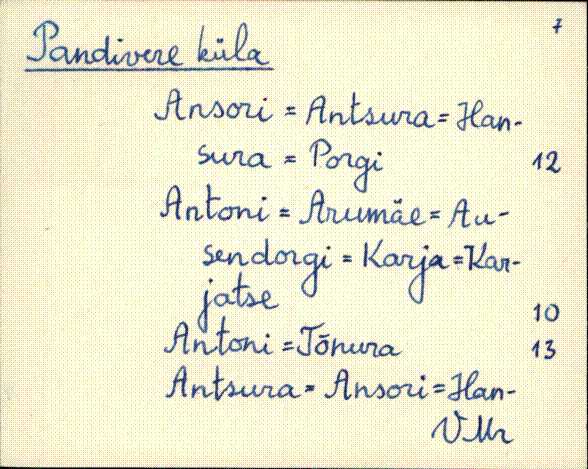 7
Pandivere küla
Ansori = Antsura = Han-
sura = Porgi 12
Antoni = Arumäe = Au-
sendorgi = Karja = Kar-
jatse 10
Antoni = Tõnura 13
Antsura = Ansori = Han-
VMr